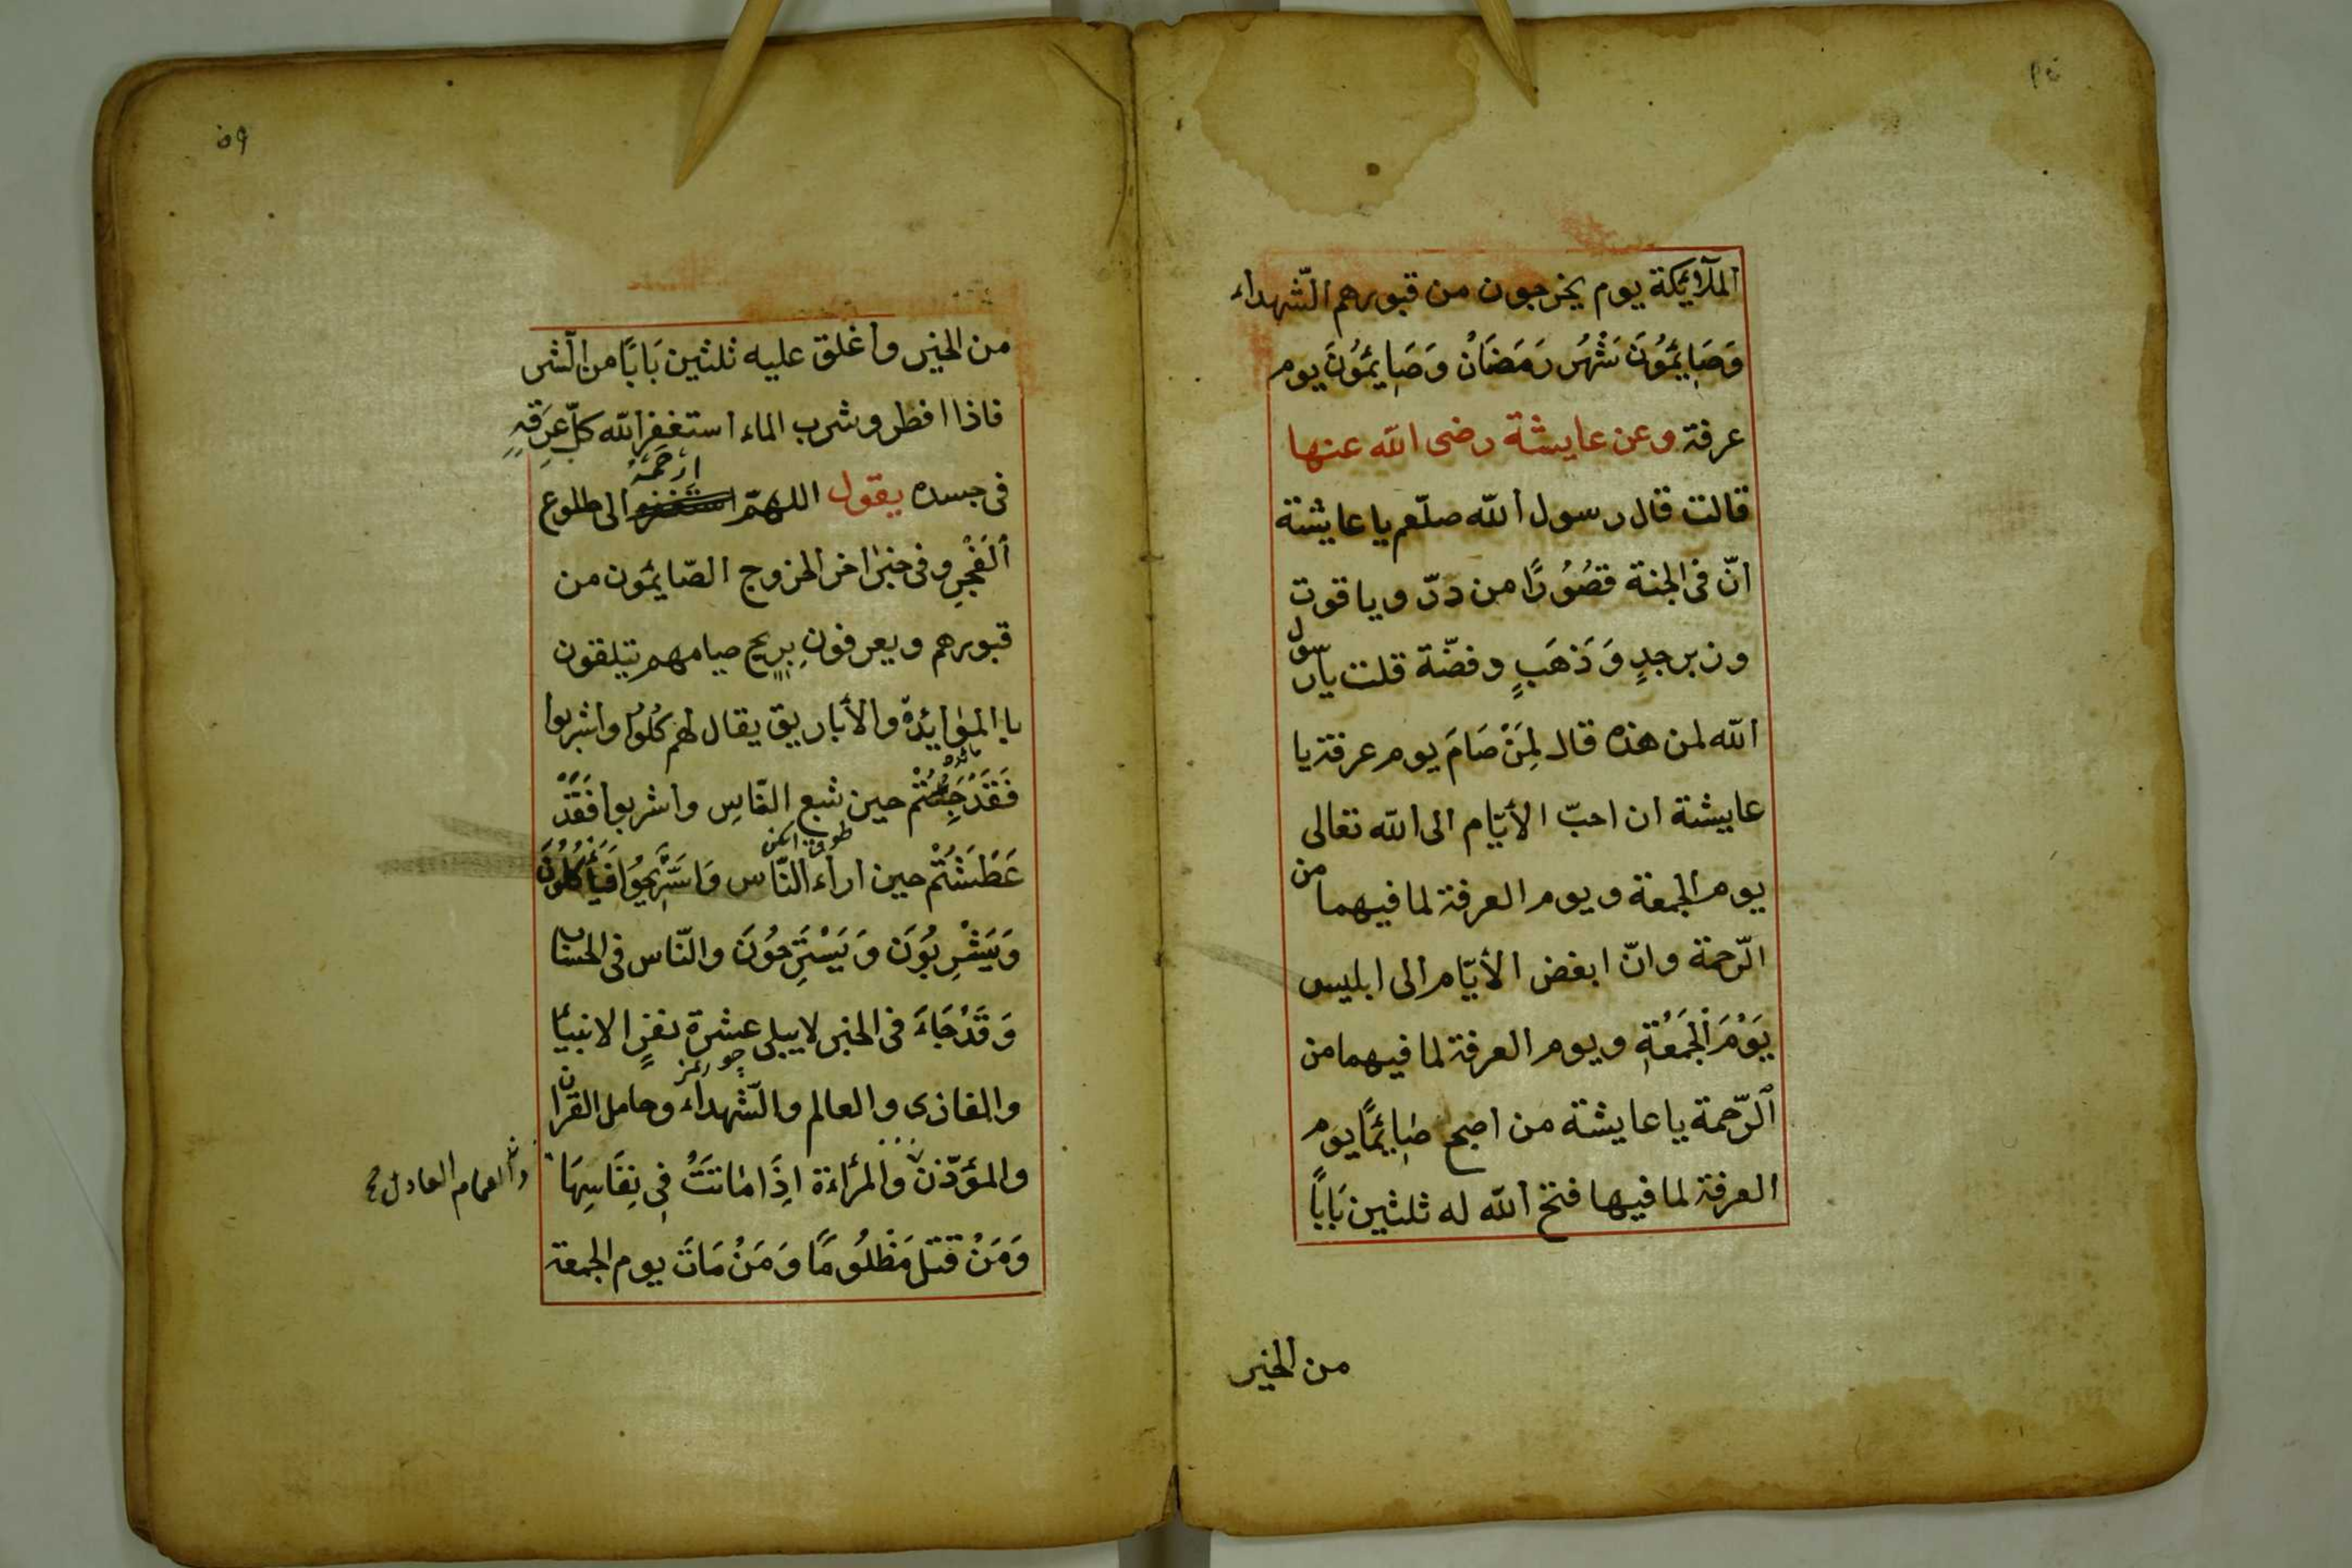 الملآئِكة يوم يخرجون من قبورهم الشّهداء
وَصَائِمُوُنَ شَهْرُ رَمَضَانْ وَصَائِمُوُنَ يوم
عرفة وعن عايشة رضى الله عنها
قالت قال رسول الله صلّعم يا عايشة
انّ فى الجنة قصُوُرًا من درّ وياقوت
وزبرجدٍ وَذهَبٍ وفضّة قلت يارسول
الله لمن هذه قال لِمَنْ صَامَ يوم عرفة يا
عايشة ان احبّ الأيّام الى الله تعالى
يوم الجمعة ويوم العرفة لما فيهما من
الرّحمة وانّ ابغض الأيّام الى ابليس
يَوْمَ الْجَمُعَةِ ويوم العرفة لما فيهما من
الرّحمة يا عايشة من اصبح صَائِمًا يوم
العرفة لما فيها فتح الله له ثلثين بَابًا
من الخير
٥٩
من الخير واغلق عليه ثلثين بَابًا من الشّر
فاذا افطر وشرب الماء استغفر الله كلّ عِرَقٍ
فى جسده يقول اللهمّ ارْحَمْهُ الى طلوع
الْفَجْرِ وفى خبر اخر الخروج الصّائمون من
قبورهم ويعرفون بِرِيح صيامهم تيلقون
باالموائدة والأباريق يقال لهم كُلُوا واشربوا
فَقَدْ جِعْتُمْ حين شبع النّاسِ واشربوا فَقَدْ
عَطَشْتُمْ حين اراء النّاس وَاسَتَرِيحُوا فَيَأكُلُونَ
وَيَشْرِبُوَن وَيَسْتَرِحُوُنَ والنّاس فى الحساب
وَقَدْ جَاءَ فى الخبر لايبلى عشرة نفرٍ الانبيأ
والغازى والعالم والشّهداء وحامل القرآن
والمؤذّن والمرأة اذَِا مَاتَتُ فِى نِفَاسِهَا
والامام العادل
وَمَنْ قتل مَظْلُومًا وَمَنْ مَاتَ يوم الجمعة